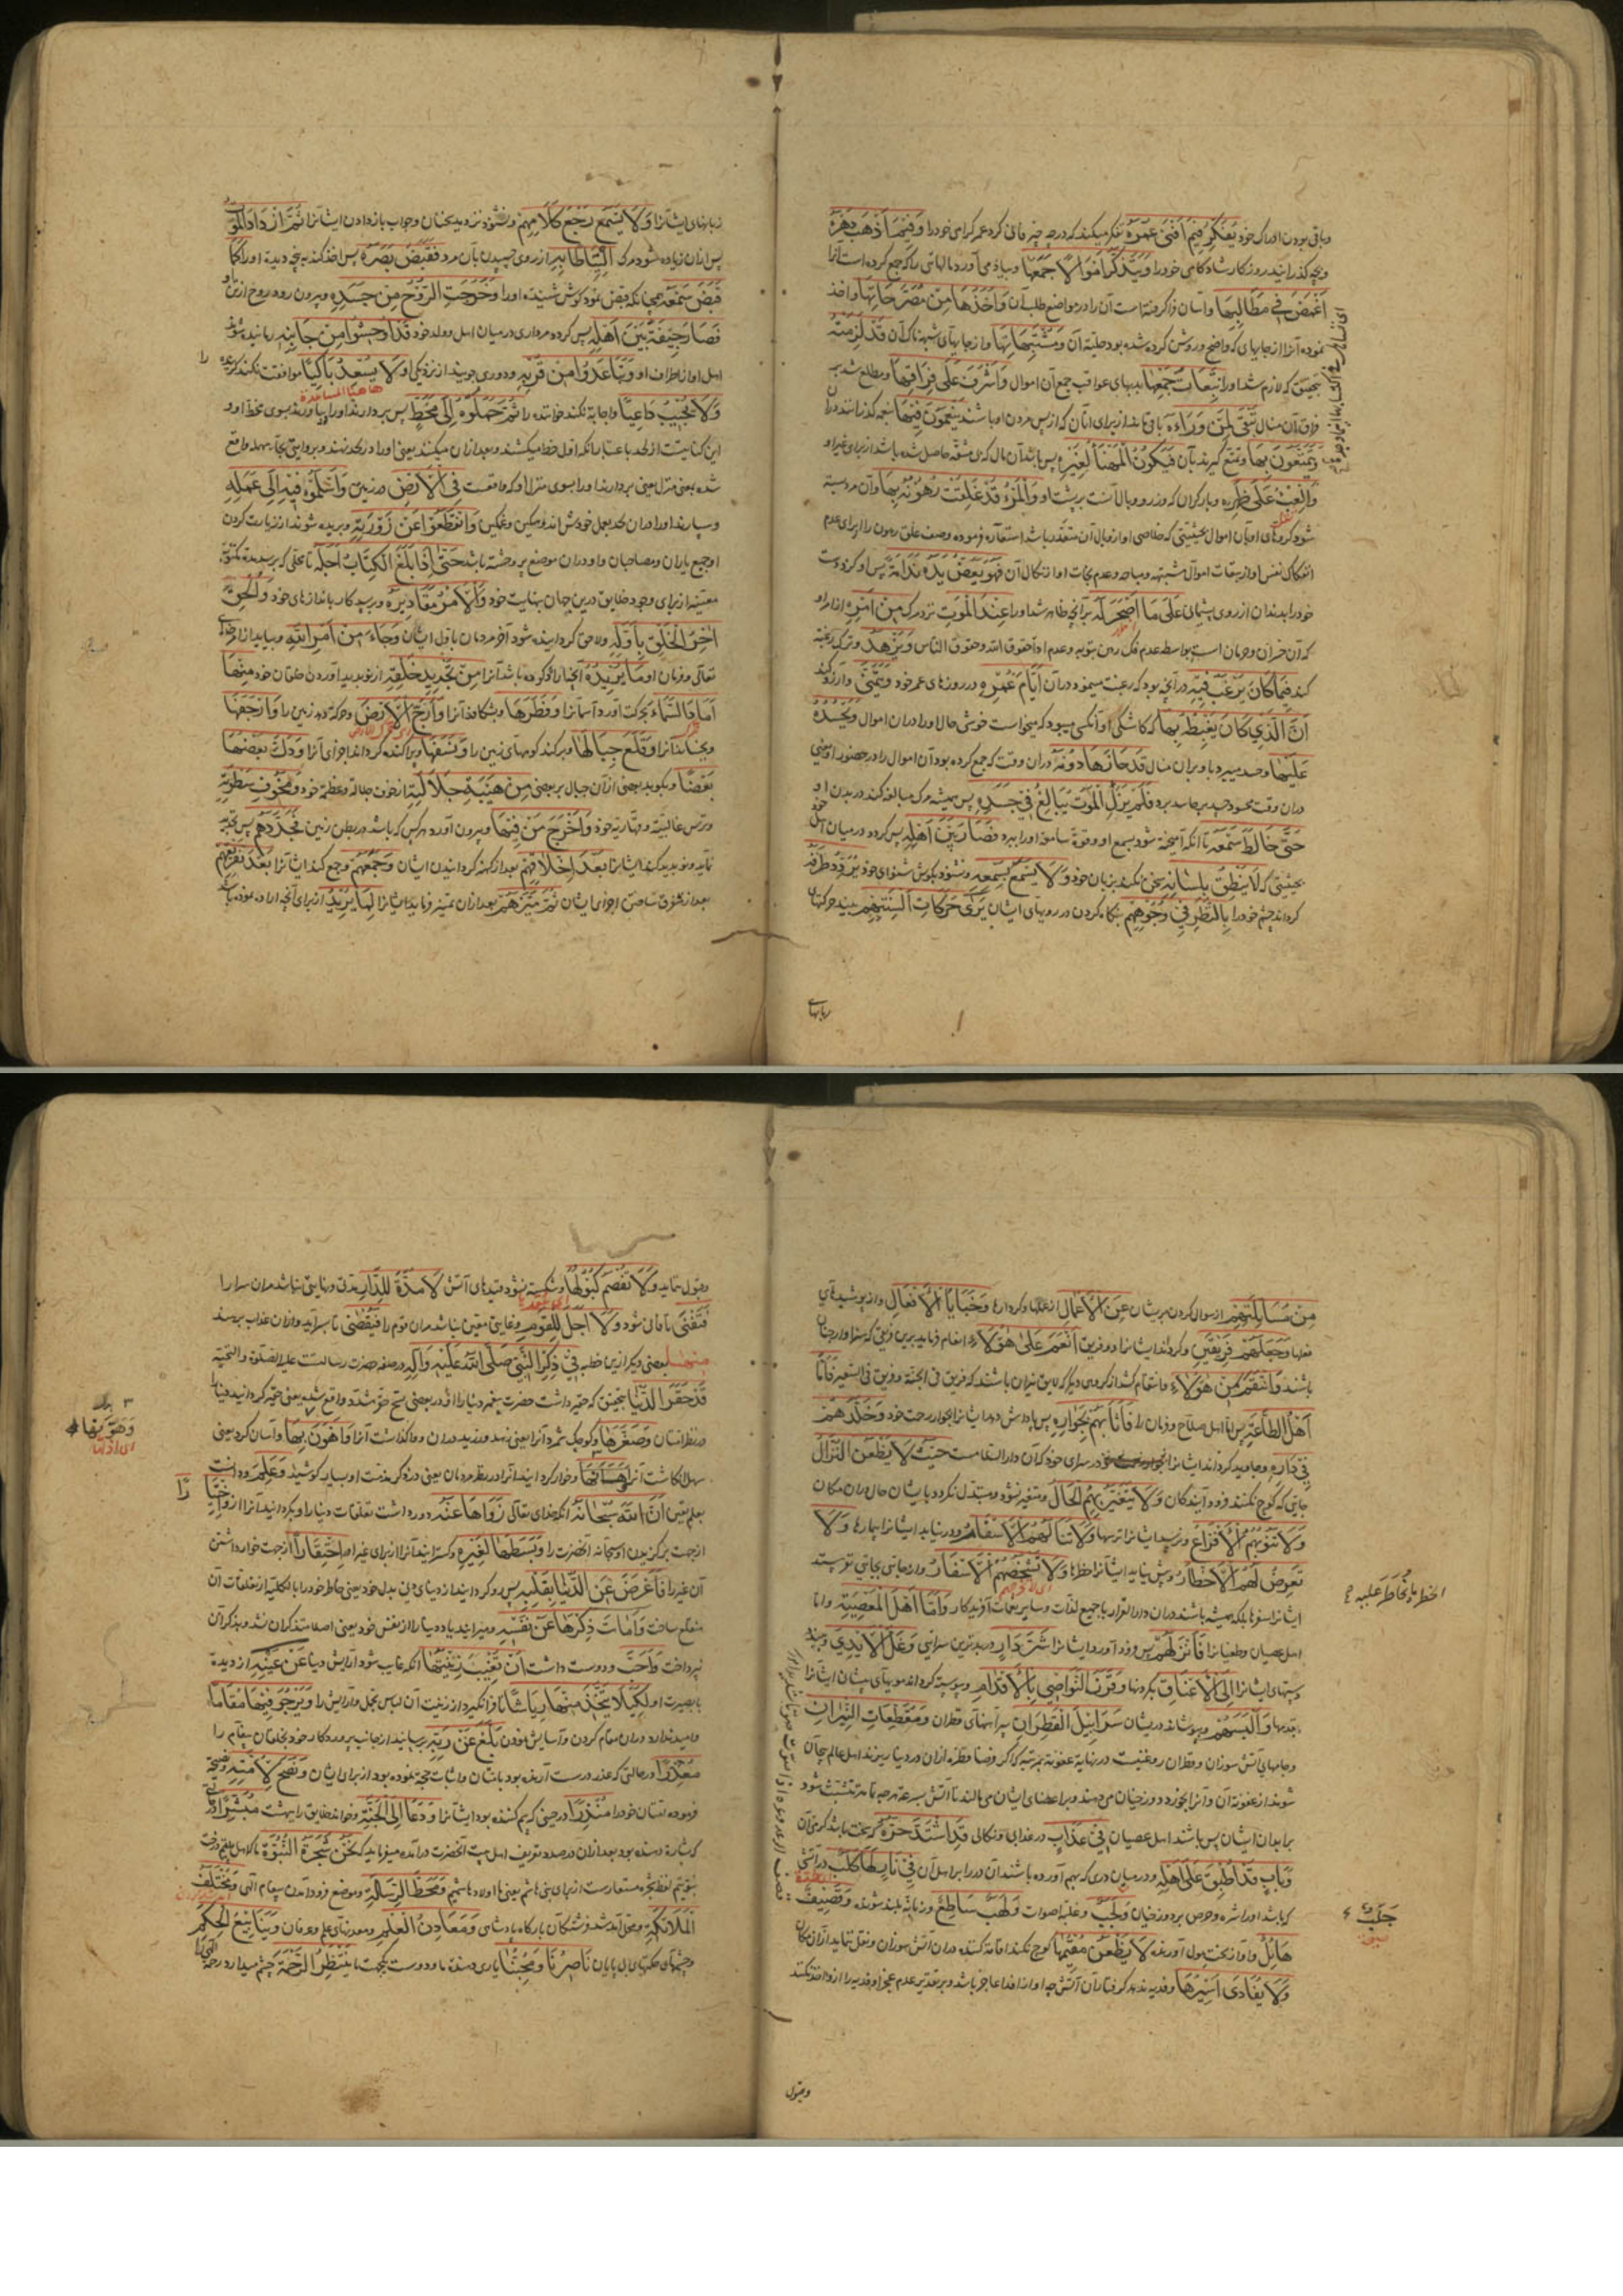 وباقی بودن ادراک خود یُفَکِّرُ فِیمَ اَفنیٰ عُمرَهُ تفکر میکند که در چه چیز فانی کرد عمر گرامی خود را وَفِیمَا اَذهَبَ دَهرَهُ
و بچه گذرانید روزگار خود را وَیَتَذَکَّرُ اَموَالاً جَمَعَها و بیاد می آورد مالهائی را که جمع کرده است آنرا
اَغمَضَ فی مَطَالِبِها و آسان فرا گرفته است آن را در مواضع طلب آن وَاَخَذَهَا مِن مُصَرَّحَاتِها و اخذ
نموده آنرا از جایهای که واضح و روشن کرده شده بود حلیت آن وَمُشتَبِهَاتِها و از جایهای شبهه ناک آن قَد لَزِمَتهُ
بتحقیق که لازم شد او را تَبِعَاتُ جَمعِها بدیهای عواقب جمع آن اموال وَاَشرَفَ عَلیٰ فِرَاقِها و مطلع شد بر
فراق آن منال تَبقیٰ لِمَن وَرَاءَهُ باقی ماند از برای آنان که از پس مردن او باشند یَنعَمُونَ فِیهَا بنعمت گذرانند در آن
وَیَتَمَتَّعُونَ بِها و تمتع گیرند بآن فَیَکُونُ المَهنَأُ لِغَیرِهِ پس باشد آن مال که بی مشقّة حاصل شده باشد از برای غیر او
وَالعِبءُ عَلیٰ ظَهرِهِ و بار گران که وزر و وبال آنست بر پشت او وَالمَرءُ قَد غَلِقَت رُهُونُهُ بِها و آن مرد بسته
شود گروهای او بآن اموال بحیثیتی که خلاصی او از وبال آن متعذّر باشد استعاره فرموده وصف غلق رهون را از برای عدم
انفکاک نفس او از تبعات اموال مشتبهه و مباحه و عدم نجات او از نکال آن فَهُوَ یَعَضُّ یَدَهُ نَدَامَةً پس او گزد دست
خود را بدندان از روی پشیمانی عَلیٰ مَا اَصحَرَ لَهُ بر آنچه ظاهر شد او را عِندَ المَوتِ نزد مرگ مِن اَمرِهِ از امر او
که آن خسران و حرمان است بواسطه عدم فک رهن بتوبه و عدم اداء حقوق الله و حقوق الناس وَیَزهَدُ و ترک رغبة
کند فِیمَا کَانَ یَرغَبُ فِیهِ در آنچه بود که رغبت مینمود در آن اَیَّامَ عُمرِهِ در روزهای عمر خود وَیَتَمَنّیٰ و آرزو کند
اَنَّ الَّذِی کَانَ یَغبِطُهُ بِها که کاشکی آنکسی میبود که میخواست خوشی حال او را در آن اموال وَیَحسُدُهُ
عَلَیها و حسد میبرد با او بر آن منال قَد حَازَها دُونَهُ در آن وقت که جمع کرده بود آن اموال را در حضور او یعنی
در آن وقت محسود چیره بر حاسد برد فَلَم یَزَلِ المَوتُ یُبَالِغُ فِی جَسَدِهِ پس همیشه مرگ مبالغه کند در بدن او
حَتّیٰ خَالَطَ سَمعَهُ تا آنکه آمیخته شود بسمع او و قوة سامعه او را ببرد فَصَارَ بَینَ اَهلِهِ پس گردد در میان اهل خود
بحیثیتی که لَا یَنطِقُ بِلِسَانِهِ سخن نکند بزبان خود وَلَا یَسمَعُ بِسَمعِهِ و نشنود بگوش شنوای خود یُرَدِّدُ طَرفَهُ
گرداند چشم خود را بِالنَّظَرِ فِی وُجُوهِهِم بنگاه کردن در رویهای ایشان یَریٰ حَرَکَاتِ اَلسِنَتِهِم بیند حرکتهای
زبانهای
زبانهای ایشانرا وَلَا یَسمَعُ رَجعَ کَلَامِهِم و نشنود تردید سخنان و جواب باز دادن ایشانرا ثُمَّ ازدَادَ المَوتُ
پس از آن زیاده شود مرگ اِلتِیَاطاً بِهِ از روی چسپیدن بآن مرد فَقَبَضَ بَصَرَهُ پس اخذ کند پنجه دیده او را کَمَا
قَبَضَ سَمعَهُ همچنانکه قبض نمود گوش شنیدنِ او را وَخَرَجَتِ الرُّوحُ مِن جَسَدِهِ و بیرون رود روح از تن او
فَصَارَ جِیفَةً بَینَ اَهلِهِ پس گردد مرداری در میان اهل و ولد خود قَد اَوحَشُوا مِن جَانِبِهِ رمانیده شوند
اهل او از اطراف او وَتَبَاعَدُوا مِن قُربِهِ و دوری جویند از نزدیکی او لَا یُسعِدُ بَاکِیاً موافقت نکند گریه کننده را
هاهنا المساعدة
وَلَا یُجِیبُ دَاعِیاً و اجابة نکند خواننده را ثُمَّ حَمَلُوهُ اِلیٰ مَخَطٍّ پس بردارند او را و بیاورند بسوی مخط او و
این کنایتست از لحد باعتبار آنکه اوّل خط میکشند و بعد از آن میکنند یعنی او را در لحد نهند و بروایتی بحاء مهمله واقع
شده یعنی منزل یعنی بردارند او را بسوی منزل او که واقعست فِی الاَرضِ در زمین وَاَسلَمُوهُ فِیهِ اِلیٰ عَمَلِهِ
و سپارند او را در آن لحد بعمل خودش اندوهگین و غمگین وَانقَطَعُوا عَن زَورَتِهِ و بریده شوند از زیارت کردن
او جمیع یاران و مصاحبان و او در آن موضع پر وحشت باشد حَتّیٰ اِذَا بَلَغَ الکِتَابُ اَجَلَهُ تا بحدی که برسد مدة مکتوبه
معیّنه از برای وجود خلایق درین جهان بنهایت خود وَالاَمرُ مَقَادِیرَهُ و رسد کار باندازهای خود وَاُلحِقَ
آخِرُ الخَلقِ بِاَوَّلِهِ و لاحق گردانیده شود آخر مردمان باوّل ایشان وَجَاءَ مِن اَمرِ اللهِ و بیاید از امر خدای
تعالی و فرمان او مَا یُرِیدُهُ آنچه اراده کرده باشد آنرا مِن تَجدِیدِ خَلقِهِ از نو پدید آوردن خلقان خود
اَمَادَ السَّمَاءَ بحرکت آورد آسمانرا وَفَطَرَها و بشکافد آنرا وَاَرَجَّ الاَرضَ و حرکة دهد زمین را وَاَرجَفَها
و بجنباند آنرا وَقَلَعَ جِبَالَها و برکند کوههای زمین را وَنَسَفَها و پراکنده گرداند اجزای آنرا وَدَکَّ بَعضُها
بَعضاً و بکوبد بعضی از آن جبال بر بعضی مِن هَیبَةِ جَلَالَتِهِ از خوف جلالة و عظمة خود وَمَخُوفِ سَطوَتِهِ
و ترس غالبیّة و قهّاریة خود وَاَخرَجَ مَن فِیهَا و بیرون آورد هر کس که باشد در بطن زمین فَجَدَّدَهُم پس تجدید
نماید و نو پدید کند ایشانرا بَعدَ اِخلَاقِهِم بعد از کهنه گردانیدن ایشان وَجَمَعَهُم و جمع کند ایشانرا بَعدَ تَفَرُّقِهِم
بعد از تفرق ساختن اجزای ایشان ثُمَّ مَیَّزَهُم بعد از آن تمییز فرماید ایشانرا لِمَا یُرِیدُ از برای آنچه اراده نموده باشد
مِن مَسَائِلَتِهِم از سوال کردن مر ایشان عَنِ الاَعمَالِ از عملها و کردارها وَخَبَایَا الاَفعَالِ و از پوشیدهای
فعلها وَجَعَلَهُم فَرِیقَینِ و گرداند ایشانرا دو فریق اَنعَمَ عَلیٰ هٰؤُلَاءِ انعام فرماید برین فریقی که سزاوار جنان
باشند وَانتَقَمَ مِن هٰؤُلَاءِ و انتقام کشد از گروهی دیگر که لایق نیران باشند که فریق فی الجنّة و فریق فی السعیر فَاَمَّا
اَهلُ الطَّاعَةِ پس امّا اهل صلاح و فرمان را فَاَثَابَهُم بِجِوَارِهِ پس پاداش دهد ایشانرا بجوار رحمت خود وَخَلَّدَهُم
فِی دَارِهِ و جاوید گرداند ایشانرا در سرای خود که آن دار السلامست حَیثُ لَا یَظعَنُ النُّزَّالُ
جایی که کوچ نکنند فرود آیندگان وَلَا یَتَغَیَّرُ بِهِمُ الحَالُ و متغیر نشود و متبدّل نگردد بایشان حال در آن مکان
وَلَا تَنُوبُهُمُ الاَفزَاعُ و نرسد ایشانرا ترسها وَلَا تَنَالُهُمُ الاَسقَامُ و در نیابد ایشانرا بیماریها وَلَا
تَعرِضُ لَهُمُ الاَخطَارُ و پیش نیاید ایشانرا خطرها وَلَا تُشخِصُهُمُ الاَسفَارُ و از جائی بجائی نفرستد
ایشانرا سفرها بلکه همیشه باشند در آن دار القرار با جمیع لذّات و سایر نعمات آفریدکار وَاَمَّا اَهلُ المَعصِیَةِ و امّا
اهل عصیان و طغیانرا فَاَنزَلَهُم پس فرود آورد ایشانرا شَرَّ دَارٍ در بدترین سرائی وَغَلَّ الاَیدِی و ببندد
دستهای ایشانرا اِلَی الاَعنَاقِ بگردنها وَقَرَنَ النَّوَاصِی بِالاَقدَامِ و پیوسته گرداند مویهای پیشانی ایشانرا
بقدمها وَاَلبَسَهُم و بپوشاند در ایشان سَرَابِیلَ القَطِرَانِ پیراهنهای قطران وَمُقَطَّعَاتِ النِّیرَانِ
و جامهای آتش سوزان و قطران روغنیست در نهایة عفونة بمرتبه که اگر فرضا قطره از آن در دنیا ریزند اهل عالم بیجان
شوند از عفونة آن و آنرا بخورد دوزخیان می دهند و بر اعضای ایشان می مالند تا آتش بسرعة هر چه تمامتر تشبّث شود
بر ابدان ایشان پس باشند اهل عصیان فِی عَذَابٍ در عذابی و نکالی قَدِ اشتَدَّ حَرُّهُ که سخت باشد گرمی آن
وَبَابٍ قَد اُطبِقَ عَلیٰ اَهلِهِ و در میان دری که بهم آورده باشند آن در را بر اهل آن فِی نَارٍ لَها کَلَبٌ در آتشی
که باشد او را شره و حرص بر دوزخیان وَلَجَبٌ و غلبه اصوات وَلَهَبٌ سَاطِعٌ و زبانه بلند شونده وَقَصِیفٌ
هَائِلٌ و آواز سخت هول آورنده لَا یَظعَنُ مُقِیمُها کوچ نکند اقامة کننده در آن آتش سوزان و نقل ننماید از آن مکان
وَلَا یُفَادیٰ اَسِیرُها و فدیه ندهد گرفتار آن آتش چه او از فدا عاجز باشد و بر تقدیر عدم عجز او فدیه را ازو اخذ نکنند
جَلَبٌ
وقبول
وقبول نماید وَلَا تُفصَمُ کُبُولُها و شکسته نشود قیدهای آتش لَا مُدَّةَ لِلدَّارِ مدّتی و نهایتی نباشد مر آن سرا را
فَتَفنیٰ تا فانی شود وَلَا اَجَلَ لِلقَومِ و غایتی معیّن نباشد مر آن قوم را فَیُقضیٰ تا بسر آید و از آن عذاب برهند
منها بعضی دیگر ازین خطبه فِی ذِکرِ النَّبِیِّ صَلَّی اللهُ عَلَیهِ وَآلِهِ در صفة حضرت رسالتست علیه الصلوة و التحیّة
قَد حَقَّرَ الدُّنیَا بتحقیق که حقیر داشت حضرت پیغمبر دنیا را و در بعضی نسخ حقر مشدد واقع شده یعنی حقیر گردانید دنیا را
در نظر انسان وَصَغَّرَها و کوچک شمرد آنرا یعنی زهد ورزید در آن و واگذاشت آنرا وَاَهوَنَ بِها و آسان کرد یعنی
وَهَوَّنَها
سهل انگاشت آنرا و خوار گردانید آنرا در نظر مردمان یعنی در ذکر مذمت او بسیار کوشید وَعَلِمَ و دانست
بعلم یقین اَنَّ اللهَ سُبحَانَهُ آنکه خدای تعالی زَوَاها عَنهُ دور داشت تعلقات دنیا را و بگردانید آنرا ازو اِختِیَاراً
از جهت برگزیدن او سبحانه آنحضرت را وَبَسَطَها لِغَیرِهِ و گسترانید آنرا از برای غیر او اِحتِقَاراً از جهت خوار داشتن
آن غیر را فَاَعرَضَ عَنِ الدُّنیَا بِقَلبِهِ پس رو گردانید از دنیای دنی بدل خود یعنی خاطر خود را بالکلیّه از تعلقات آن
منقلع ساخت وَاَمَاتَ ذِکرَها عَن نَفسِهِ و میرانید یاد دنیا را از نفس خود یعنی اصلا متذکر آن نشد و بذکر آن
نپرداخت وَاَحَبَّ و دوست داشت اَن تَغِیبَ زِینَتُها آنکه غایب شود آرایش دنیا عَن عَینِهِ از دیدهٔ
با بصیرت او لِکَیلَا یَتَّخِذَ مِنهَا رِیَاشاً تا فرا نگیرد از زینت آن لباس تجمل و آرایش را وَیَرجُوَ فِیهَا مُقَاماً
و امید ندارد در آن مقام کردن و آسایش نمودن بَلَّغَ عَن رَبِّهِ برسانید از جانب پروردگار خود بخلقان پیغام را
مُعذِراً در حالتی که عذر درست آرنده بود بایشان و اثبات حجّة نموده بود از برای ایشان وَنَصَحَ لِاُمَّتِهِ و نصیحة
فرموده امّتان خود را مُنذِراً در حینی که بیم کننده بود ایشانرا وَدَعَا اِلَی الجَنَّةِ و خواند خلایق را ببهشت مُبَشِّراً در
که بشارة دهنده بود بعد از آن در صدد تعریف اهل بیت آنحضرت درآمده میفرماید که نَحنُ شَجَرَةُ النُّبُوَّةِ
وَمَحَطُّ الرِّسَالَةِ و موضع فرود آمدن پیغام الهی وَمُختَلَفُ
المَلَائِکَةِ و محل آمد شد فرشتگان بارگاه پادشاهی وَمَعَادِنُ العِلمِ و معدنهای علم و عرفان وَیَنَابِیعُ الحِکَمِ
و چشمهای حکمتهای بی پایان نَاصِرُنَا وَمُحِبُّنَا یاری دهنده ما و دوست بجهت ما یَنتَظِرُ الرَّحمَةَ چشم میدارد رحمة